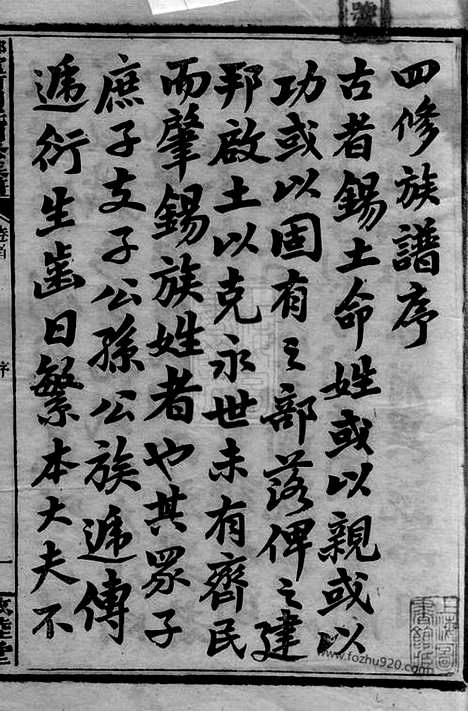 四修族譜序
古者錫土命姓或以親或以
功或以固有之部落俾之建
邦啟土以克永世未有齊民
而肇錫族姓者也其眾子
庶子支子公孫公族遞傳
遞衍生齒日繁本大夫不
卷首
序
www.fozhu920.com